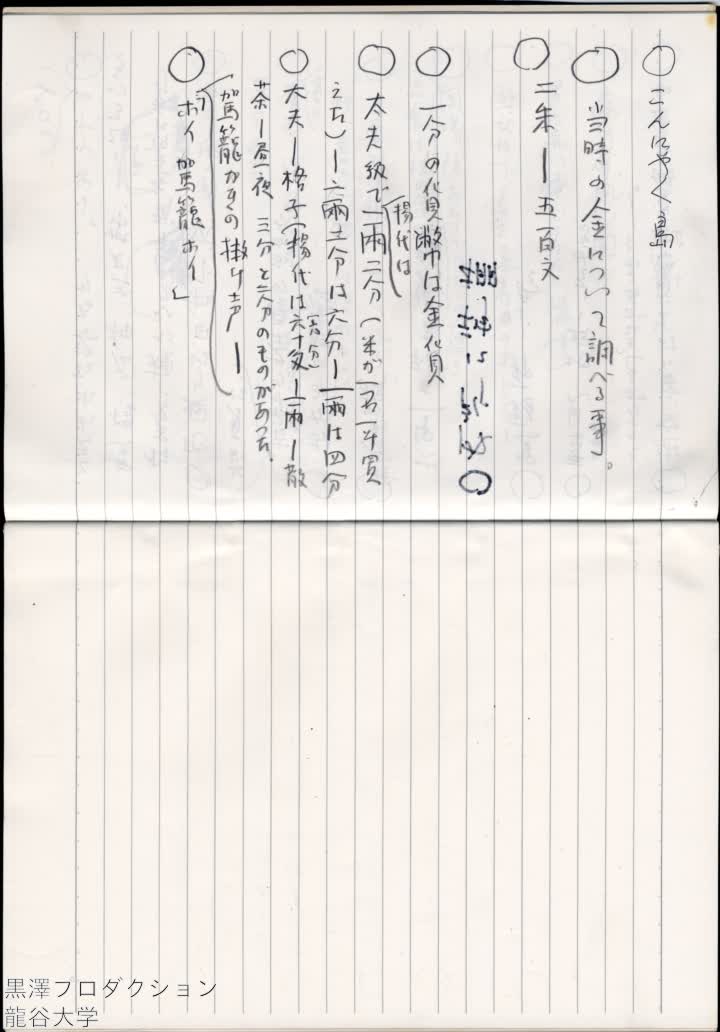 ○ こんにゃく島
○ 当時の金について調べる事。
○ 二朱ー五百文
○ 一分の貨幣は金貨
○ 太夫級で一両二分(米が一石一斗買
揚代は
える)ー一両二分は六分ー一両は四分
○ 太夫ー格子(揚代は六十匁ー一両ー散
(六分)
茶ー昼夜 三分と二分のものがあった。
駕籠かきの掛け声ー
○ 「ホイ駕籠ホイ」
黒澤プロダクション
龍谷大学